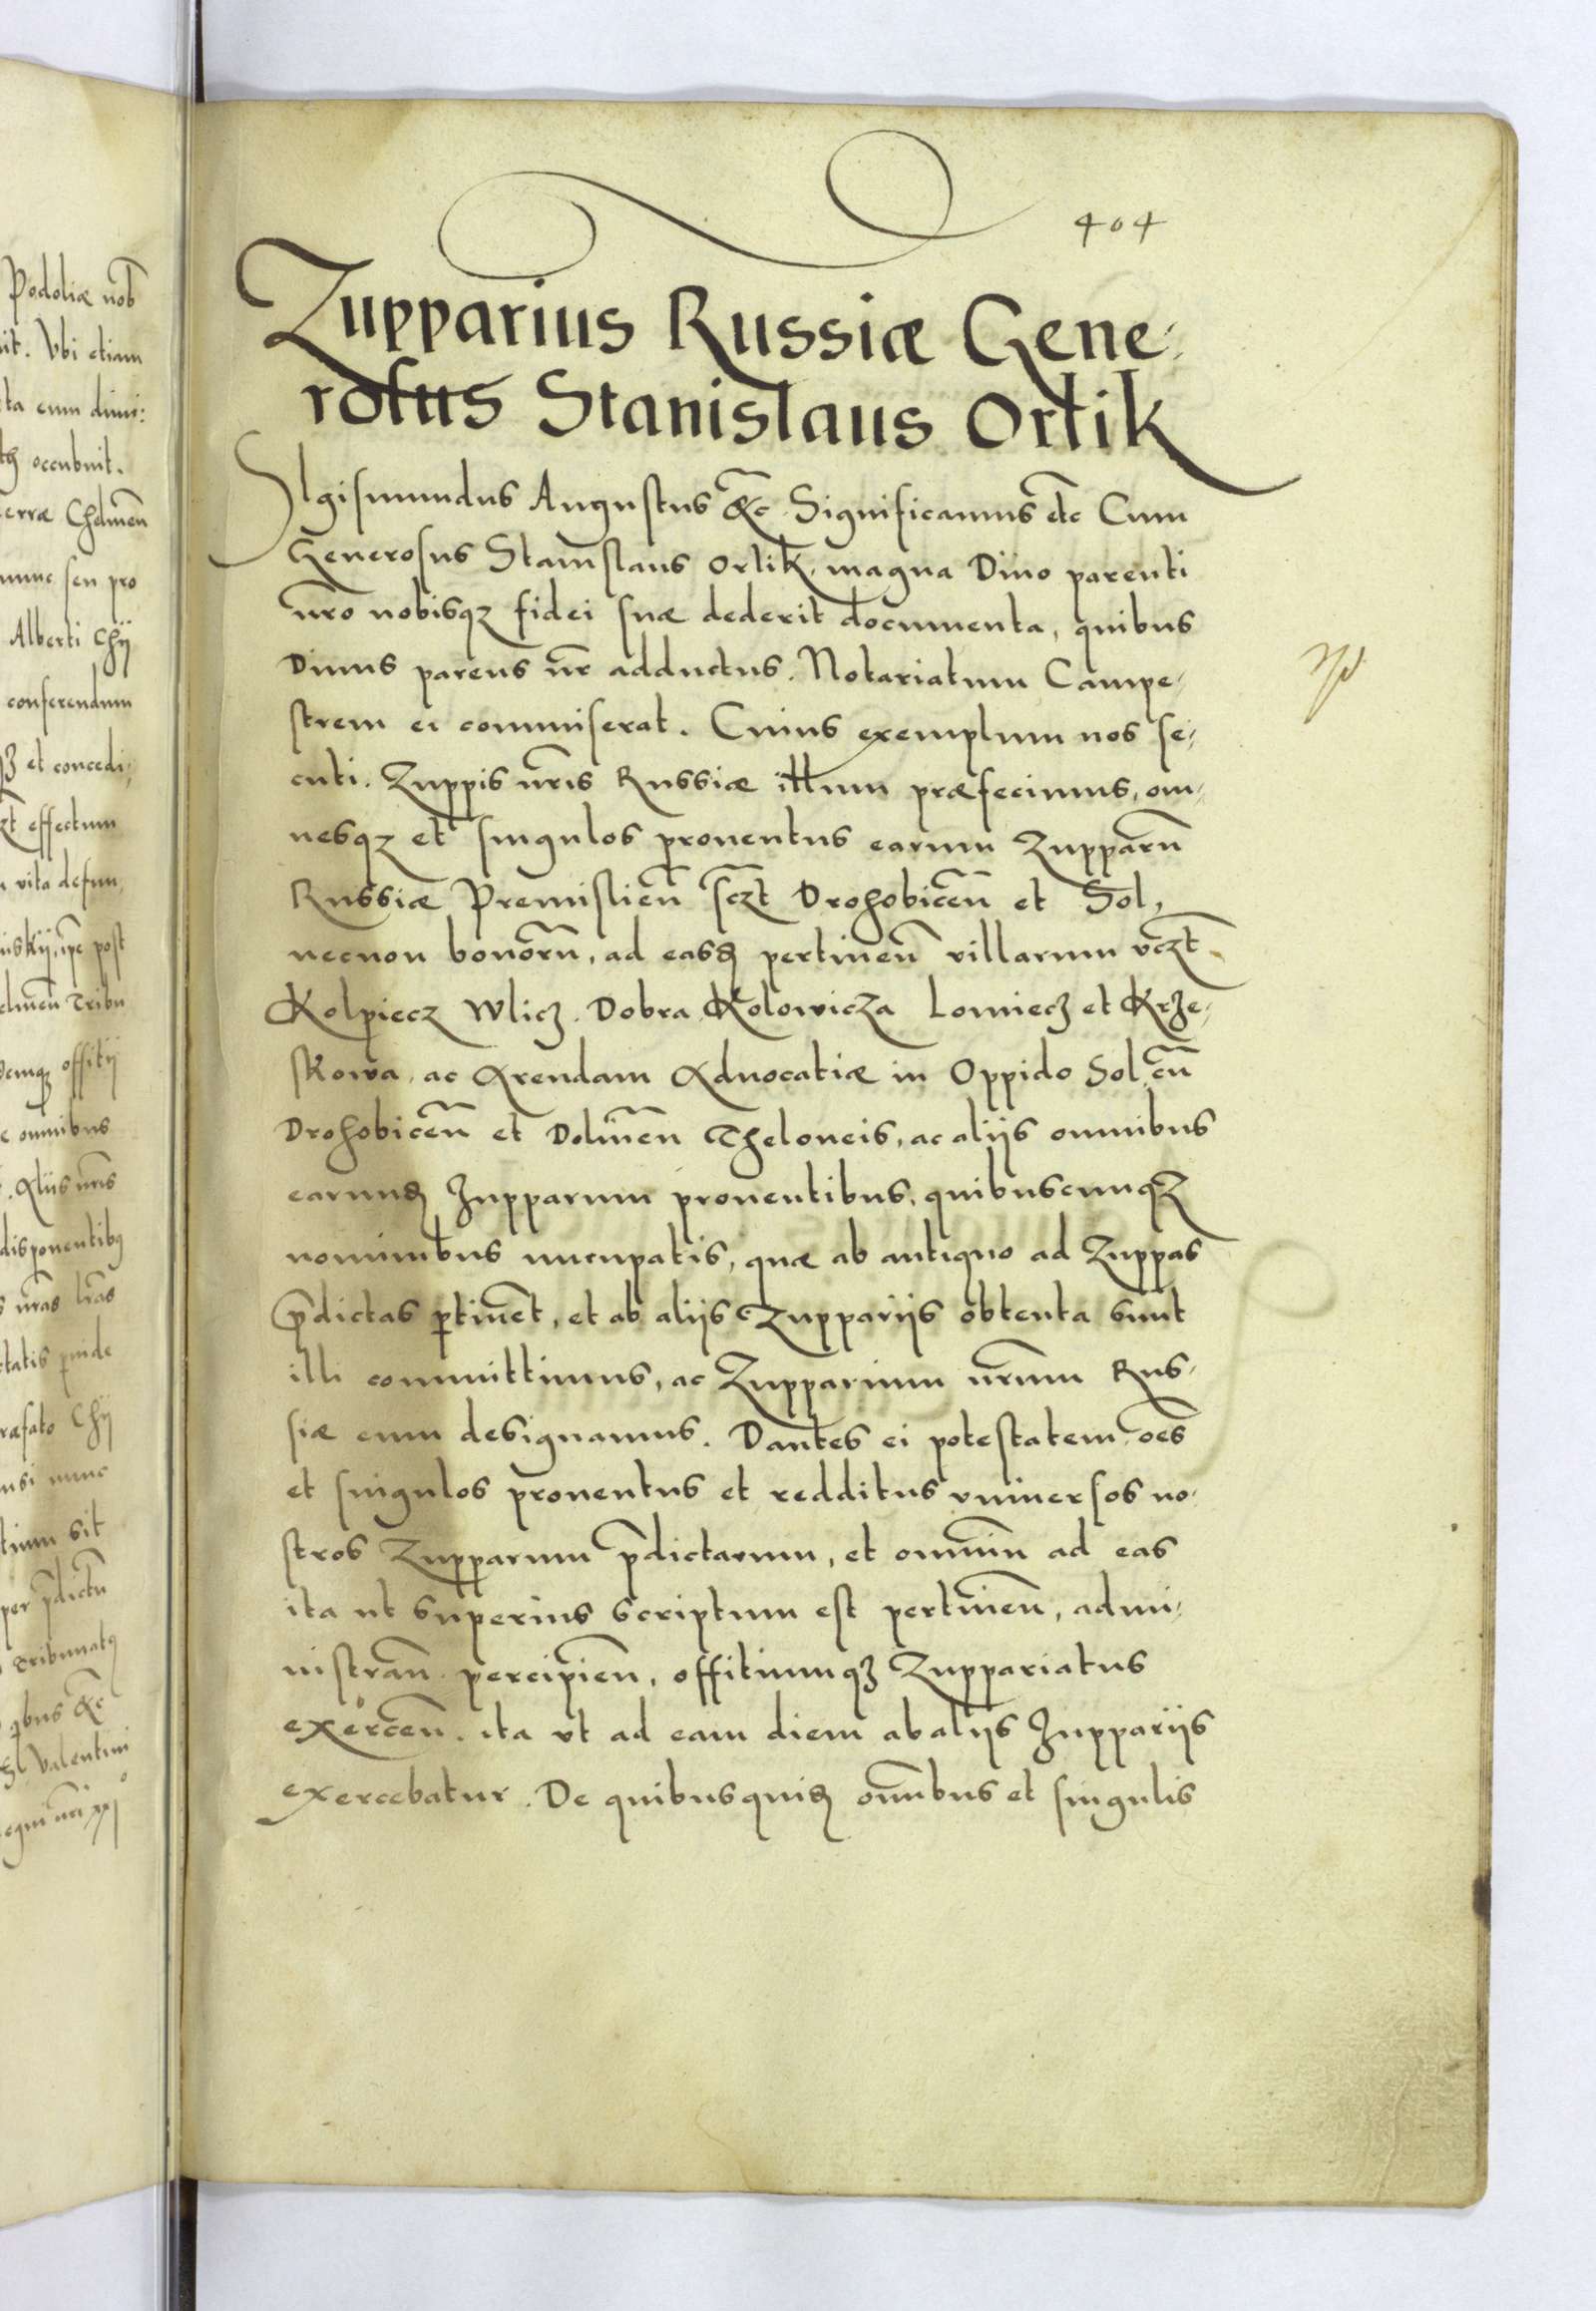 404
Zupparius Russiæ Gene-
rosus Stanislaus Orlik
SIgismundus Augustus &c Significamus etc Cum
Generosus Stanislaus Orlik, magna Diuo parenti
nr̃o nobisqz fidei suæ dederit documenta, quibus
Diuus parens nr̃ adductus. Notariatum Campe-
strem ei commiserat. Cuius exemplum nos se-
cuti. Zuppis nr̃is Russiæ illum præfecimus, om-
nesqz et singulos prouentus earum Zupparũ
Russiæ Premislieñ sczt Drohobiceñ et Sol,
necnon bonorũ, ad easđ pertineñ villarum vczt
Kolpiecz Wlicz. Dobra Kolowicza Lomiecz et Krze-
skowa, ac Arendam Aduocatiæ in Oppido Sol, cũ
Drohobiceñ et Dolineñ Theloneis, ac aliis omnibus
earunđ Zupparum prouentibus, quibuscunqz
nominibus nuncupatis, quæ ab antiquo ad Zuppas
p̃dictas ptineт̃, et ab aliis Zuppariis obtenta sunt
illi committimus, ac Zupparium nr̃um Rus-
siæ eum designamus. Dantes ei potestatem oẽs
et singulos prouentus et redditus vniuersos no-
stros Zupparum p̃dictarum, et omniũ ad eas
ita ut superius scriptum est pertineñ, admi-
nistrañ percipieñ, offitiumqz Zuppariatus
exerceñ. ita vt ad eam diem ab aliis Zuppariis
exercebatur. De quibusquiđ omĩbus et singulis
Podoliæ nob̃
it. Vbi etiam
occubuit.
Chelmeñ
seu pro
Alberti Chÿ
conferendum
et concedi-
effectum
vita defun-
post
Tribu
offitij
omnibus
Aliis nr̃is
disponentibus
nr̃as lr̃as
Chÿ
nunc
sit
per p̃dictũ
Tribunatus
Valentini